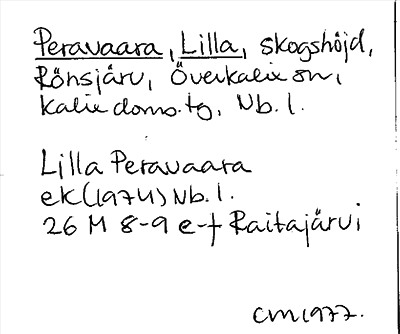 Peravaara, Lilla, skogshöjd,
Rönsjärv, Överkalix sn,
Kalix doms.tg, Nb. l.
Lilla Peravaara
ek (1974) Nb. l.
26 M 8-9 e-f Raitajärvi
CM1977.